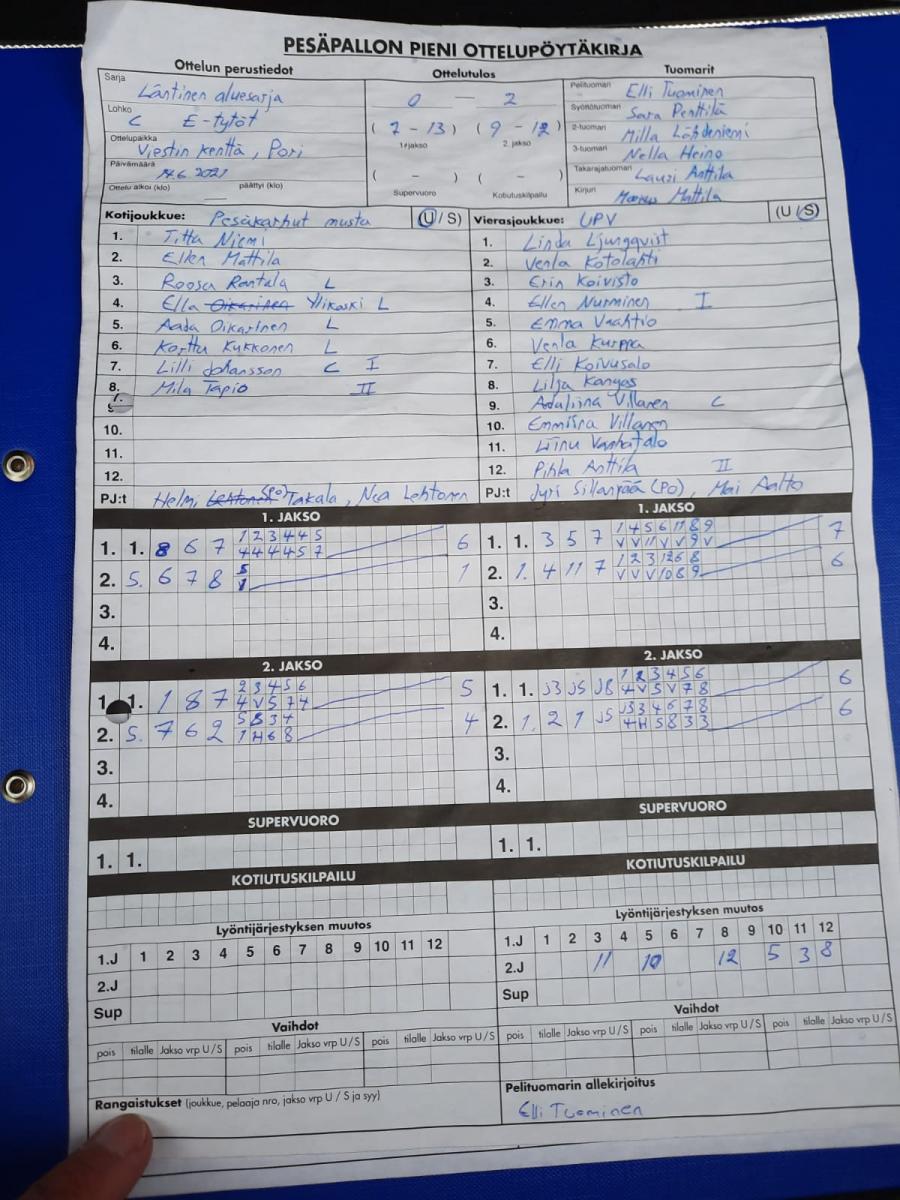 PESÄPALLON PIENI OTTELUPÖYTÄKIRJA
Ottelun perustiedot
Sarja
Läntinen aluesarja
Lohko
C E-tytöt
Ottelupaikka
Viestin kenttä, Pori
Päivämäärä
14.6 2021
Ottelu alkoi (klo) päättyi (klo)
Ottelutulos
0 — 2
( 7 - 13 ) ( 9 - 12 )
1. jakso 2. jakso
( - ) ( - )
Supervuoro Kotiutuskilpailu
Tuomarit
Pelituomari Elli Tuominen
Syöttötuomari Sara Penttilä
2-tuomari Milla Lähdeniemi
3-tuomari Nella Heino
Takarajatuomari Lauri Anttila
Kirjuri Mattila
Kotijoukkue: Pesäkarhut musta (U / S)
1. Titta Niemi
2. Ellen Mattila
3. Roosa Rantala L
4. Ella Oikarinen Ylikoski L
5. Aada Oikarinen L
6. Kerttu Kukkonen L
7. Lilli Johansson C I
8. Mila Tapio II
9.
10.
11.
12.
PJ:t Helmi Lehtonen (PO) Takala, Nea Lehtonen
Vierasjoukkue: UPV (U / S)
1. Linda Ljungqvist
2. Venla Kotolahti
3. Erin Koivisto
4. Ellen Nurminen I
5. Emma Vaahtio
6. Venla Kurppa
7. Elli Koivusalo
8. Lilja Kangas
9. Adaliina Villanen C
10. Emmiina Villanen
11. Liinu Vanhatalo
12. Pihla Anttila II
PJ:t Jyri Sillanpää (PO), Mai Aalto
1. JAKSO
1 2 3 4 4 5
1. 1. 8 6 7 4 4 4 4 5 7 6
5
2. 5. 6 7 8 1 1
3.
4.
1. JAKSO
1 4 5 6 11 8 9
1. 1. 3 5 7 V V 11 V V 9 V 7
1 2 3 12 6 8
2. 1. 4 11 7 V V V 10 8 9 6
3.
4.
2. JAKSO
2 3 4 5 6
1. 1. 1 8 7 4 V 5 7 4 5
5 8 3 4
2. 5. 7 6 2 1 H 6 8 4
3.
4.
2. JAKSO
1 2 3 4 5 6
1. 1. J3 J5 J8 4 V 5 V 7 8 6
J3 3 4 6 7 8
2. 1. 2 1 J5 4 H 5 8 3 3 6
3.
4.
SUPERVUORO
1. 1.
SUPERVUORO
1. 1.
KOTIUTUSKILPAILU
KOTIUTUSKILPAILU
Lyöntijärjestyksen muutos
1.J 1 2 3 4 5 6 7 8 9 10 11 12
2.J
Sup
Lyöntijärjestyksen muutos
1.J 1 2 3 4 5 6 7 8 9 10 11 12
2.J 11 10 12 5 3 8
Sup
Vaihdot
pois tilalle Jakso vrp U / S pois tilalle Jakso vrp U / S pois tilalle Jakso vrp U / S
Vaihdot
pois tilalle Jakso vrp U / S pois tilalle Jakso vrp U / S pois tilalle Jakso vrp U / S
Rangaistukset (joukkue, pelaaja nro, jakso vrp U / S ja syy)
Pelituomarin allekirjoitus
Elli Tuominen